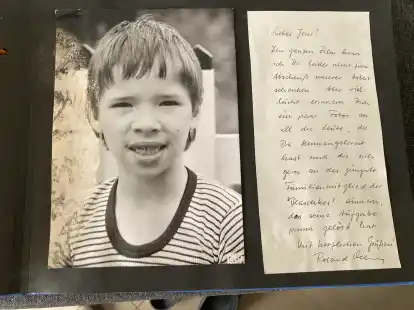 Lieber Jens!
Den ganzen Film kann
ich Dir leider nicht zum
Abschluß unserer Arbeit
schenken. Aber viel-
leicht erinnern Dich
ein paar Fotos an
all die Leute, die
Du kennengelernt
hast und die sich
gern an das jüngste
Familienmitglied der
erinnern,
das seine Aufgabe
prima gelöst hat.
Mit herzlichen Grüßen
Roland